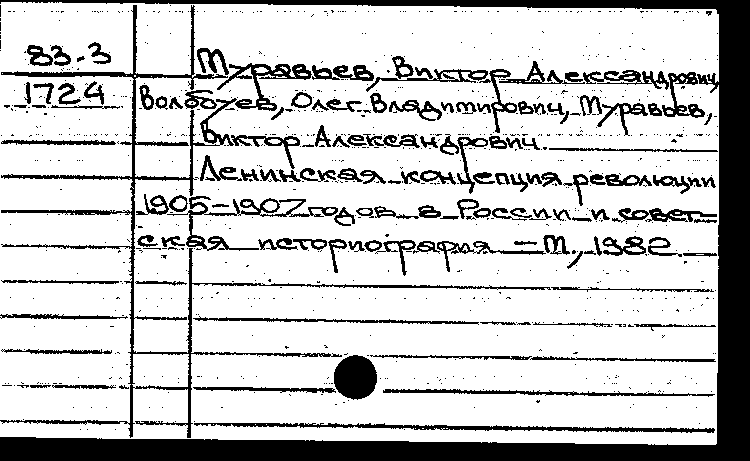 83.3 Муравьев, Виктор Александрович,
1724 Волобуев, Олег Владимирович, Муравьев,
Виктор Александрович.
Ленинская концепция революции
1905-1907 годов в России и совет-
ская историография – М., 1982.